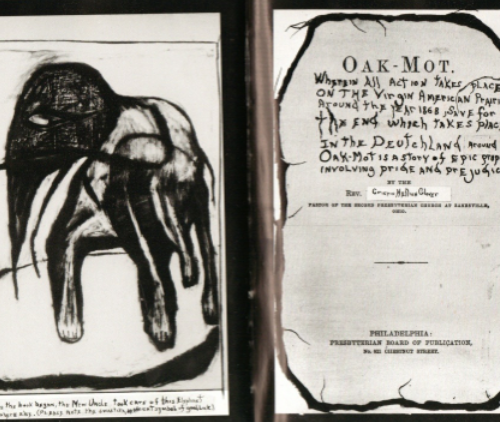 the book began, the New Uncle took care of this Elephant
OAK-MOT.
Wherein All Action takes place
ON THE Virgin American Prairie
Around the year 1868, save for
the END which takes place
IN the Deutchland Around
OAK-Mot is a story of Epic prop
involving pride AND prejudice
BY THE
REV.
PASTOR OF THE SECOND PRESBYTERIAN CHURCH AT ZANESVILLE,
OHIO.
PHILADELPHIA:
PRESBYTERIAN BOARD OF PUBLICATION,
No. 821 CHESTNUT STREET.